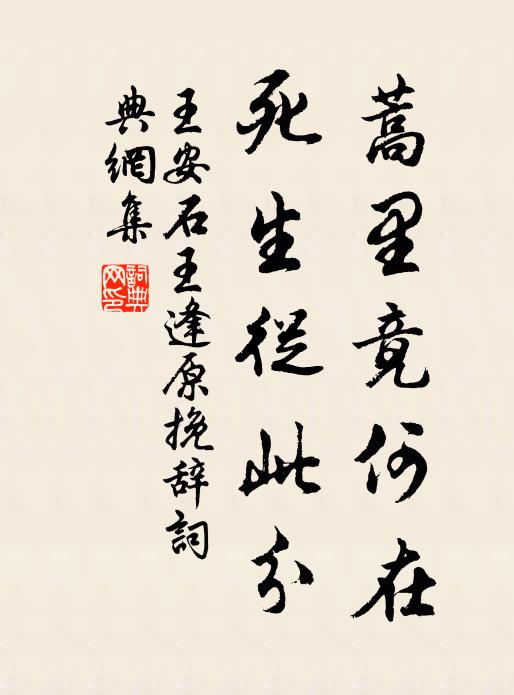 蒿里竟何在
死生從此分
王安石王逢原挽辞詞
典網集
詞典
网印